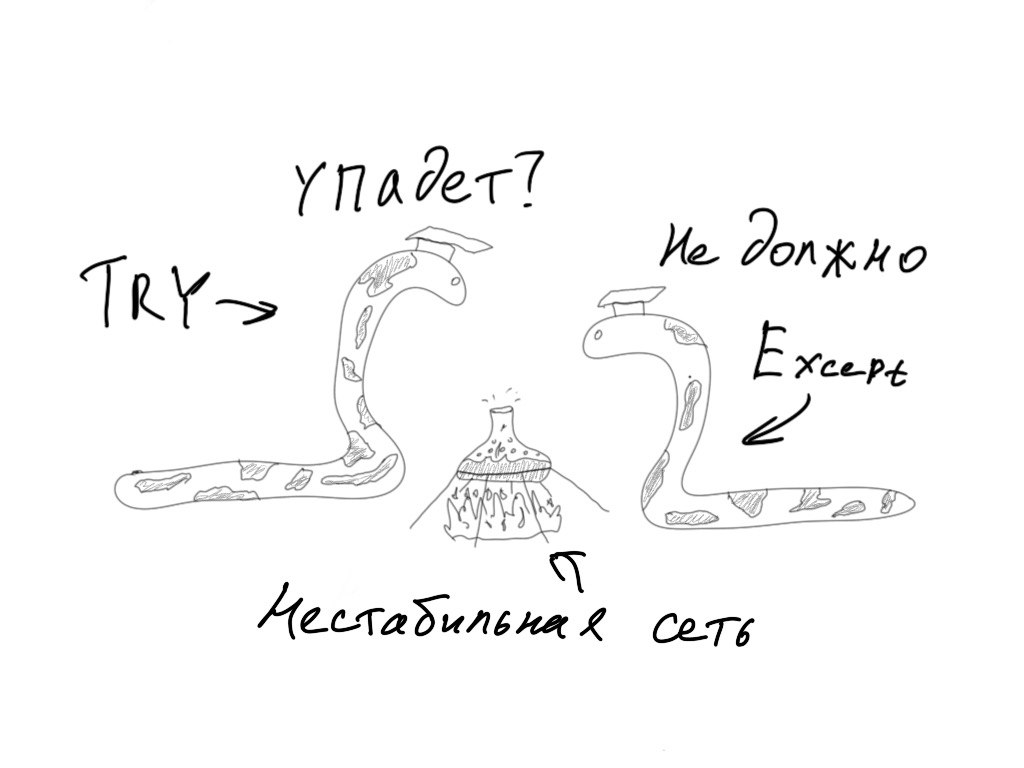 упадет?
не должно
TRY
Except
Нестабильная сеть